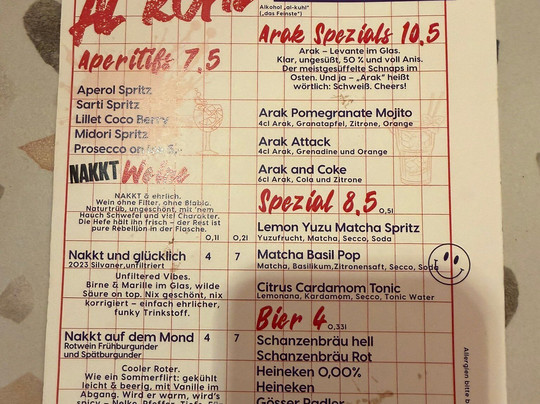 Al Kohl
Alkohol „al-kuhl"
(„das Feinste")
Aperitifs 7,5
Aperol Spritz
Sarti Spritz
Lillet Coco Berry
Midori Spritz
Prosecco on Ice 5,-
NAKKT Weine
NAKKT & ehrlich.
Wein ohne Filter, ohne Blabla.
Naturtrüb, ungeschönt, mit 'nem
Hauch Schwefel und viel Charakter.
Die Hefe hält ihn frisch – der Rest ist
pure Rebellion in der Flasche.
0,1l 0,2l
Nakkt und glücklich 4 7
2023 Silvaner, unfiltriert
Unfiltered Vibes.
Birne & Marille im Glas, wilde
Säure on top. Nix geschönt, nix
korrigiert – einfach ehrlicher,
funky Trinkstoff.
Nakkt auf dem Mond 4 7
Rotwein Frühburgunder
und Spätburgunder
Cooler Roter.
Wie ein Sommerflirt: gekühlt
leicht & beerig, mit Vanille im
Abgang. Wird er warm, wird's
spicy – Nelke, Pfeffer, Tiefe. Für
Arak Spezials 10,5
Arak – Levante im Glas.
Klar, ungesüßt, 50 % und voll Anis.
Der meistgesüffelte Schnaps im
Osten. Und ja – „Arak" heißt
wörtlich: Schweiß. Cheers!
Arak Pomegranate Mojito
4cl Arak, Granatapfel, Zitrone, Orange
Arak Attack
4cl Arak, Grenadine und Orange
Arak and Coke
6cl Arak, Cola und Zitrone
Spezial 8,5
0,5l
Lemon Yuzu Matcha Spritz
Yuzufrucht, Matcha, Secco, Soda
Matcha Basil Pop
Matcha, Basilikum, Zitronensaft, Secco, Soda
Citrus Cardamom Tonic
Lemonana, Kardamom, Secco, Tonic Water
Bier 4
0,33l
Schanzenbräu hell
Schanzenbräu Rot
Heineken 0,00%
Heineken
Gösser Radler
Allergien bitte b